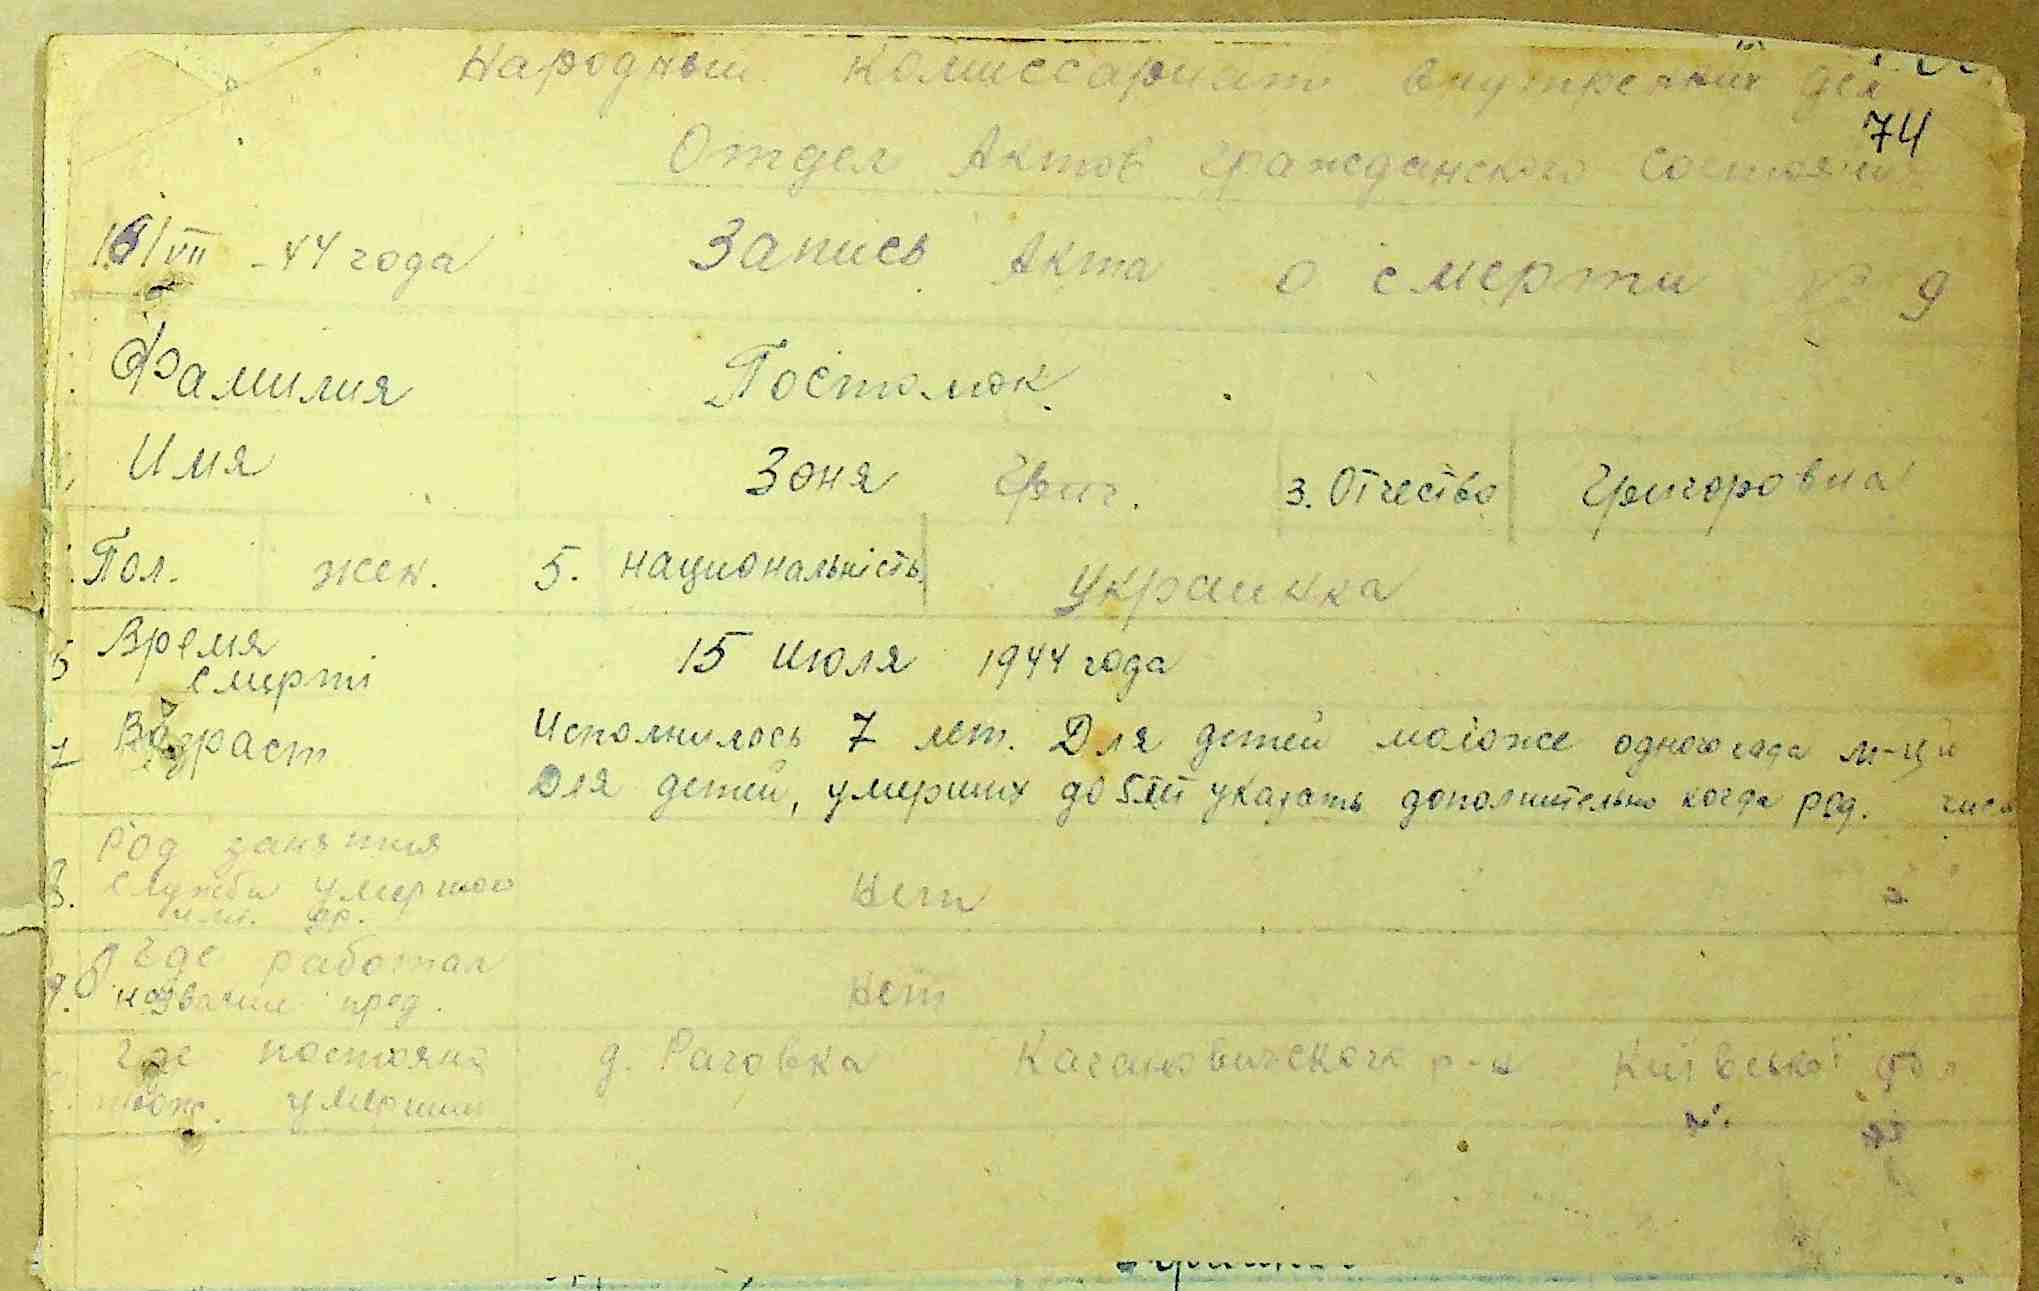 Народный Комиссариат Внутрених дел
74
Отдел Актов Гражданского Состояния
16/VII -44 года Запись Акта о смерти № 9
Фамилия Постолюк
Имя Зоня Григ. 3. Отчество Григоровна
Пол. жен. 5. национальність Украинка
Время смерті 15 Июля 1944 года
Возраст Исполнилось 7 лет. Для детей моложе одного года м-ци
Для детей, умерших до 5 лет указать дополнительно когда род. число
8. Род занятия службы умершого или др. Нет
9. Где работал название пред. Нет
Где постояно прож. умерший д. Раговка Кагановичского р-н Київської обл